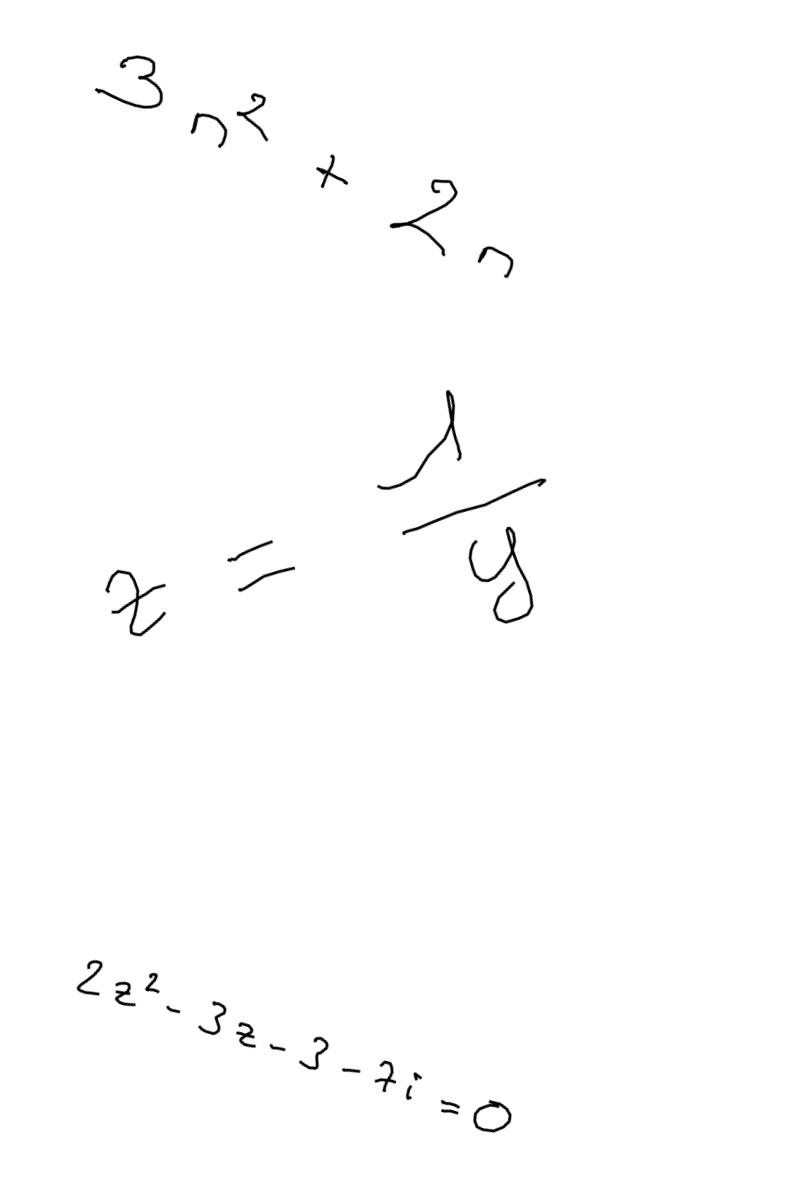 3n² + 2n
z = λ/y
2z² - 3z - 3 - 7i = 0